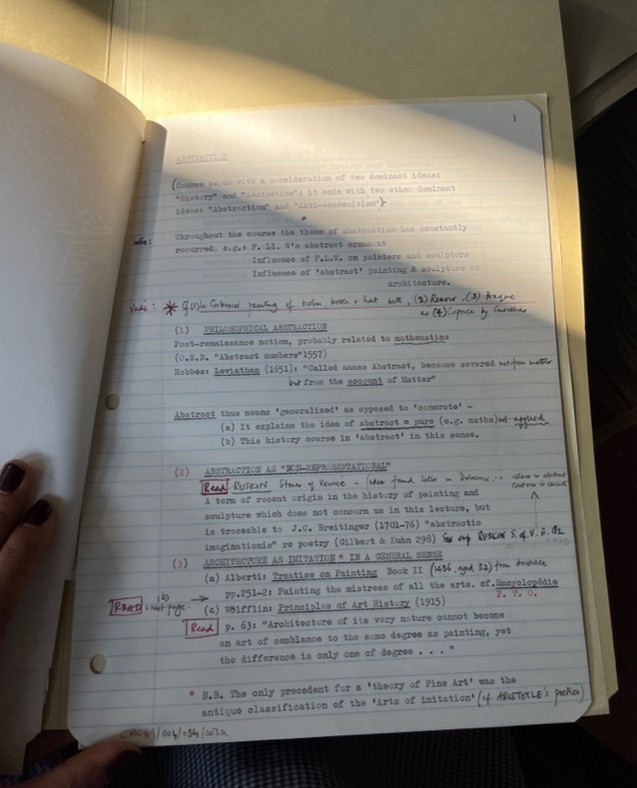 1
ABSTRACTION
(Course began with a consideration of two dominant ideas:
"History" and "Aesthetics"; it ends with two other dominant
ideas: "Abstraction" and "Anti-academicism")
Throughout the course the theme of abstraction has constantly
recurred, e.g.: F. Ll. W's abstract ornament
Influence of F.L.W. on painters and sculptors
Influence of 'abstract' painting & sculpture on
architecture.
painting of violin, & hat (3) Braque
(4)
(1) PHILOSOPHICAL ABSTRACTION
Post-renaissance notion, probably related to mathematics
(O.E.D. "Abstract numbers"1557)
Hobbes: Leviathan (1651): "Called names Abstract, because severed not from matter
but from the account of Matter"
Abstract thus means 'generalized' as opposed to 'concrete' -
(a) It explains the idea of abstract = pure (e.g. maths) not applied
(b) This history course in 'abstract' in this sense.
(2) ABSTRACTION AS "NON-REPRESENTATIONAL"
Read RUSKIN Stones of Venice - (idea found later in
A term of recent origin in the history of painting and
sculpture which does not concern us in this lecture, but
is traceable to J.C. Breitinger (1701-76) "abstractio
imaginationis" re poetry (Gilbert & Kuhn 298) See RUSKIN S. of V. ii.
(3) ARCHITECTURE AS IMITATION * IN A GENERAL SENSE
(a) Alberti: Treatise on Painting Book II (1436, aged 32) from Aristotle
pp.251-2: Painting the mistress of all the arts. cf. Encyclopédie
P. T. O.
READ (b) → next page.
(c) Wölfflin: Principles of Art History (1915)
Read p. 63: "Architecture of its very nature cannot become
an art of semblance to the same degree as painting, yet
the difference is only one of degree . . . "
* N.B. The only precedent for a 'theory of Fine Art' was the
antique classification of the 'Arts of imitation' (cf ARISTOTLE's poetics)